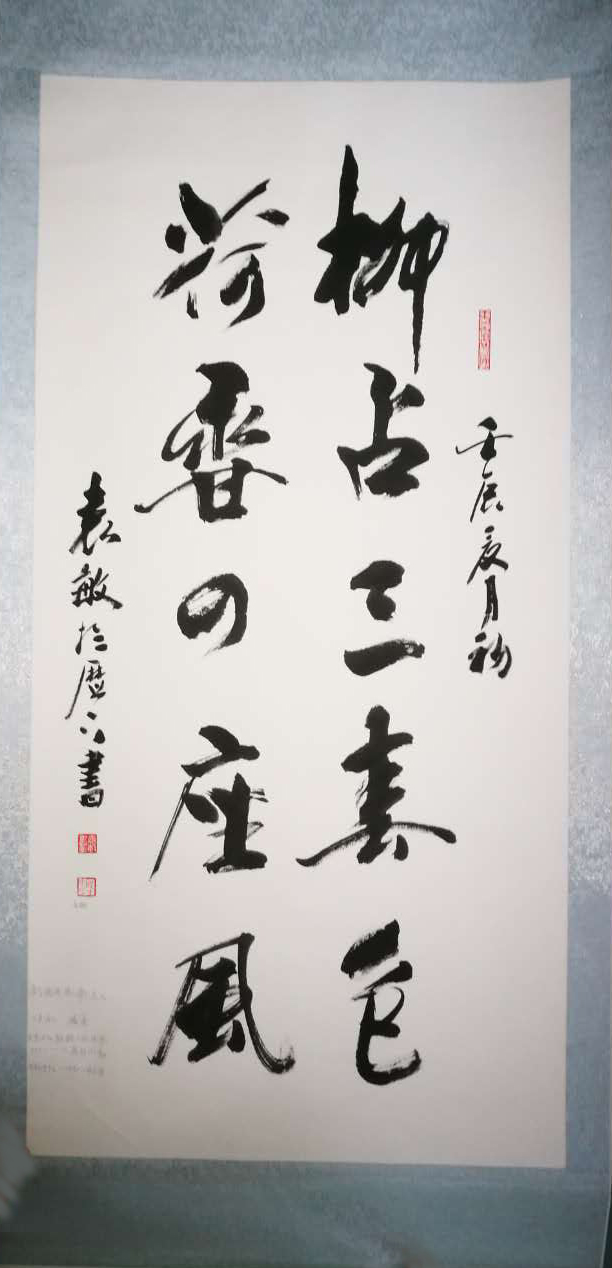 壬辰夏月初
柳占三春色
荷香四座風
袁敏於歷下書